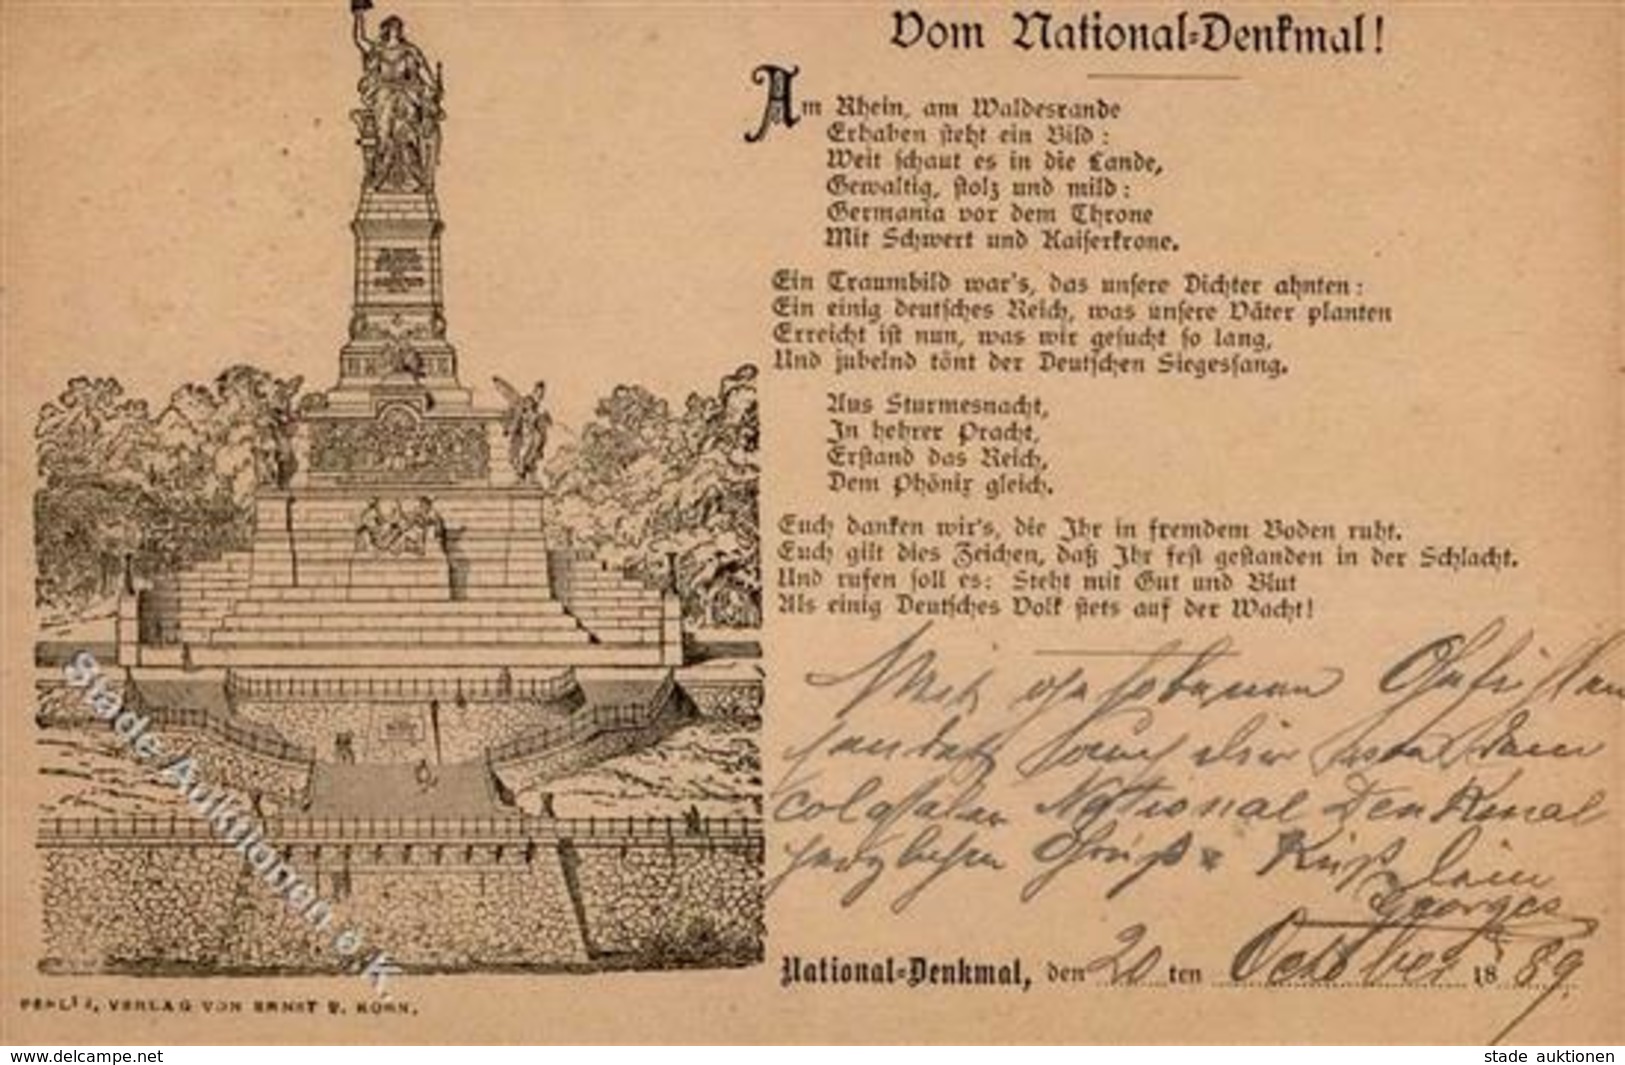 Vom National-Denkmal!
Am Rhein, am Waldesrande
Erhaben steht ein Bild:
Weit schaut es in die Lande,
Gewaltig, stolz und mild:
Germania vor dem Throne
Mit Schwert und Kaiserkrone.
Ein Traumbild war's, das unsere Dichter ahnten:
Ein einig deutsches Reich, was unsere Väter planten
Erreicht ist nun, was wir gesucht so lang,
Und jubelnd tönt der Deutschen Siegessang.
Aus Sturmesnacht,
In hehrer Pracht,
Erstand das Reich,
Dem Phönix gleich.
Euch danken wir's, die Ihr in fremdem Boden ruht.
Euch gilt dies Zeichen, daß Ihr fest gestanden in der Schlacht.
Und rufen soll es: Steht mit Gut und Blut
Als einig Deutsches Volk stets auf der Wacht!
Mit gehobenen
sendet Dir von dem
colossalen National Denkmal
herzlichen Gruß & Kuß Dein
Georges
National-Denkmal, den 20 ten October 1889.
VERLAG VON ERNST V. KORN.
Stade Auktionen o.K
www.delcampe.net
stade auktionen